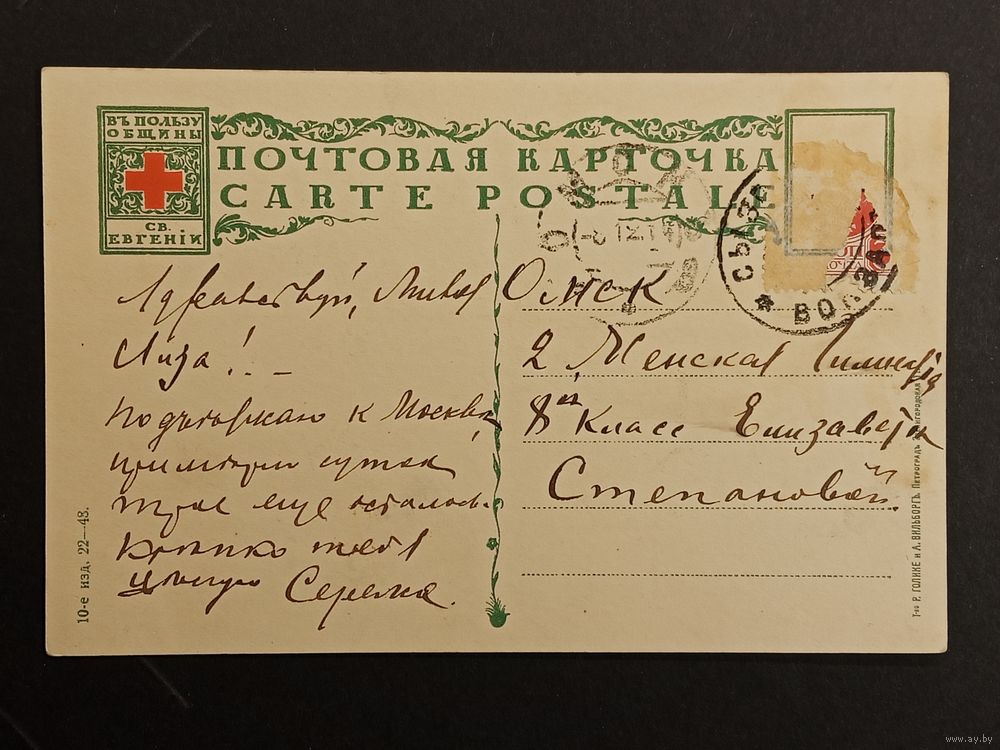 ВЪ ПОЛЬЗУ
ОБЩИНЫ
СВ.
ЕВГЕНІИ
ПОЧТОВАЯ КАРТОЧКА
CARTE POSTALE
Здравствуй, милая
Лиза!
Подъезжаю к Москве,
суток
еще осталось.
Крепко тебя
целую Сережа.
Омск
2 Женская Гимназія
8й Класс Елизавете
Степановой
10-е изд. 22—48.
Т-во Р. ГОЛИКЕ и А. ВИЛЬБОРГЪ. ПЕТРОГРАДЪ
www.ay.by